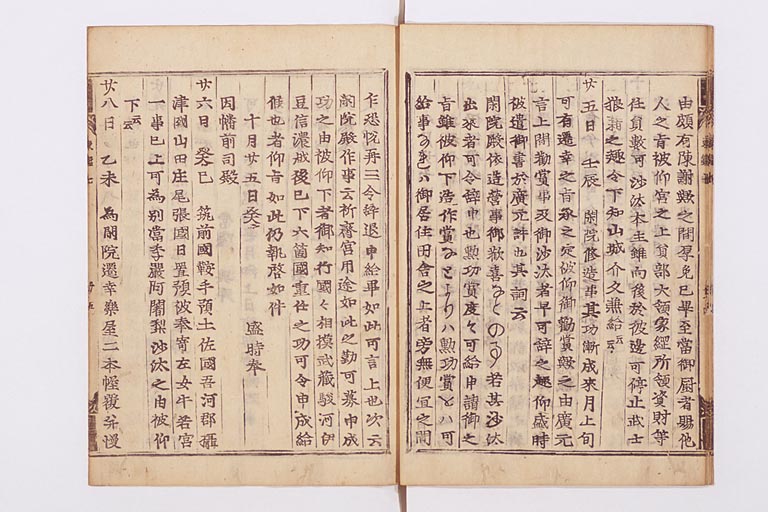 由頗有陳謝歟之間厚免已畢至當御厨者賜他
人之旨被仰宮之上員部大領家經所領資財等
任員數可沙汰本主雖向後於彼邊可停止武士
狼藉之趣令下知山城介久兼給云云
廿五日 壬辰 閑院修造事其功漸成來月上旬
可有遷幸之旨承之定被仰御勸賞歟之由廣元
言上間勸賞事及御沙汰者早可辭之趣仰盛時
被遣御書於廣元許也其詞云
閑院殿依造營事御歡喜なとのる 若其沙汰
出來者可令辭申也勲功賞度々可給申請御之
旨雖被仰下造作賞なとよりハ功賞とハ可
給事なれハ御居住田舎之上者旁無便宜之間
乍恐悦再三令辭退申給畢如此可言上也次云
閑院殿作事云祈齋宮用途如此之勤可募申成
功之由被仰下者御知行國々相摸武藏駿河伊
豆信濃越後已下六箇國重任之功可令申成給
候也者仰旨如此仍執啓如件
十月廿五日 盛時奉
因幡前司殿
廿六日 癸巳 筑前國鞍手領土佐國吾河郡攝
津國山田庄尾張國日置領被奉寄左女牛若宮
一事已上可為別當季嚴阿闍梨沙汰之由被仰
下云云
廿八日 乙未 為閑院遷幸樂屋二本幢覆幷幔